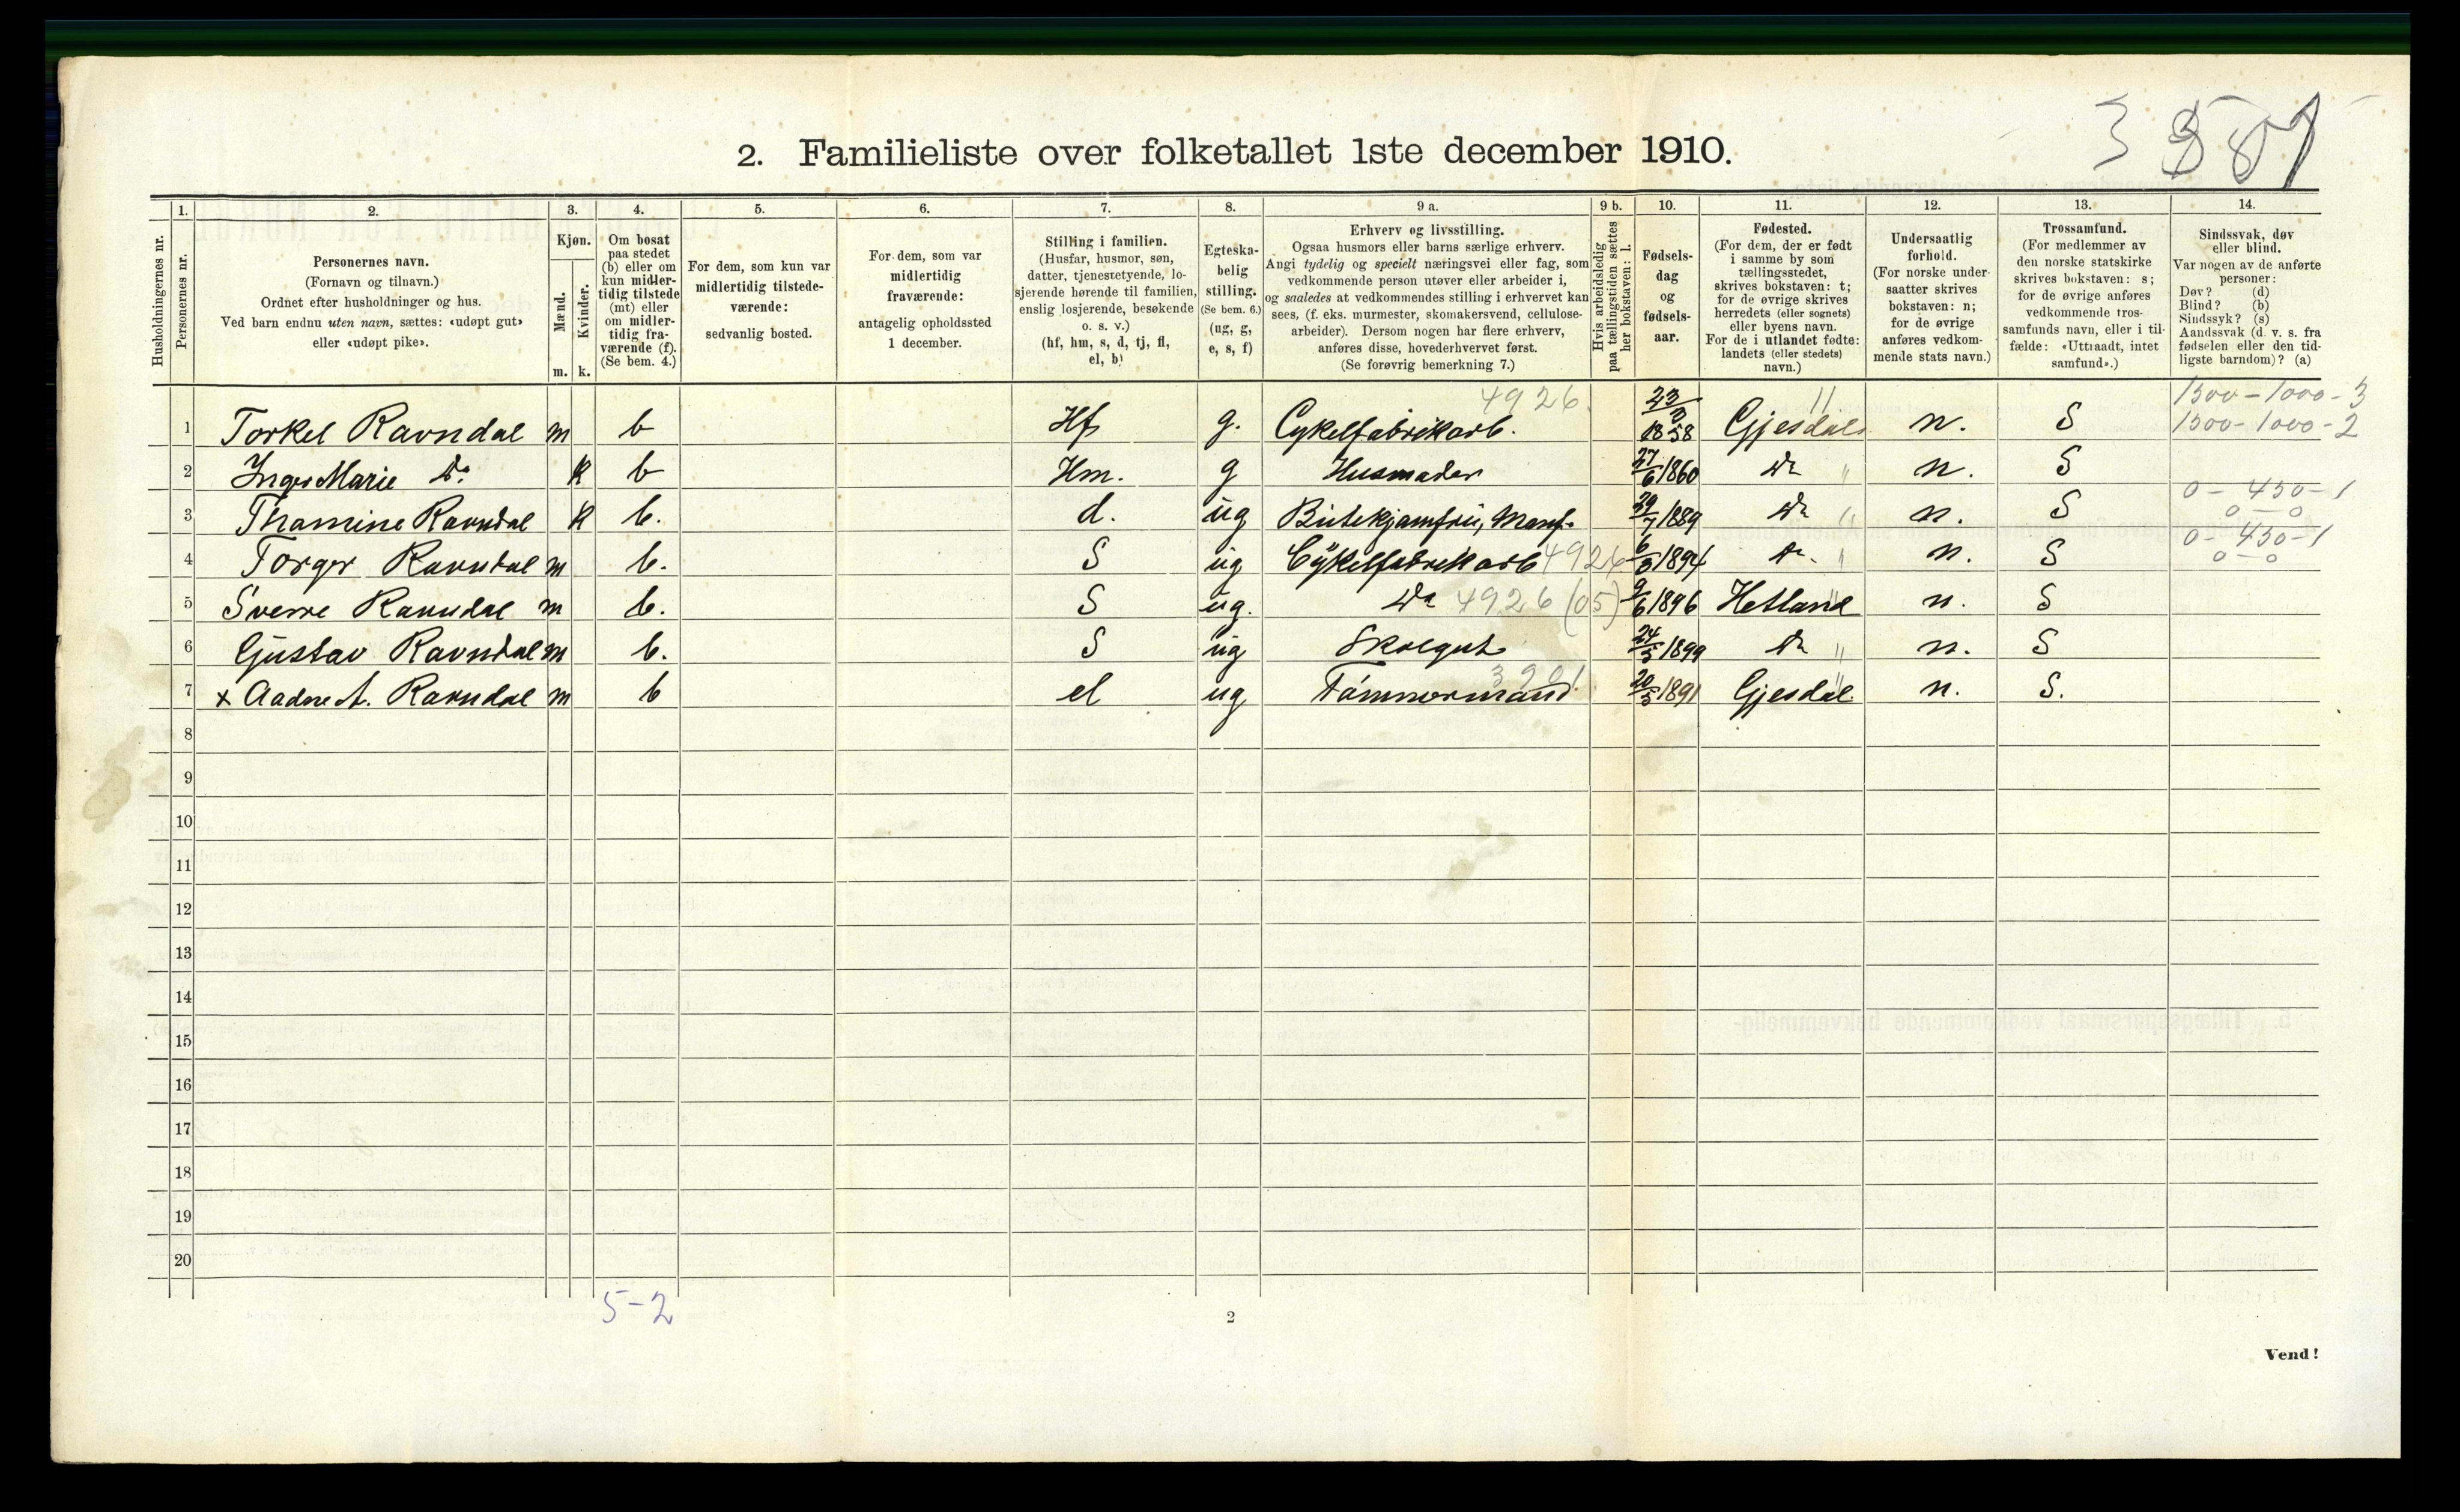 3 381
2. Familieliste over folketallet 1ste december 1910.
1. 2. 3. 4. 5. 6. 7. 8. 9 a. 9 b. 10. 11. 12. 13. 14.
Husholdningernes nr.
Personernes nr.
Personernes navn.
(Fornavn og tilnavn.)
Ordnet efter husholdninger og hus.
Ved barn endnu uten navn, sættes: «udøpt gut»
eller «udøpt pike».
Kjøn.
Mænd.
Kvinder.
m. k.
Om bosat
paa stedet
(b) eller om
kun midler-
tidig tilstede
(mt) eller
om midler-
tidig fra-
værende (f).
(Se bem. 4.)
For dem, som kun var
midlertidig tilstede-
værende:
sedvanlig bosted.
For dem, som var
midlertidig
fraværende:
antagelig opholdssted
1 december.
Stilling i familien.
(Husfar, husmor, søn,
datter, tjenestetyende, lo-
sjerende hørende til familien,
enslig losjerende, besøkende
o. s. v.)
(hf, hm, s, d, tj, fl,
el, b)
Egteska-
belig
stilling.
(Se bem. 6.)
(ug, g,
e, s, f)
Erhverv og livsstilling.
Ogsaa husmors eller barns særlige erhverv.
Angi tydelig og specielt næringsvei eller fag, som
vedkommende person utøver eller arbeider i,
og saaledes at vedkommendes stilling i erhvervet kan
sees, (f. eks. murmester, skomakersvend, cellulose-
arbeider). Dersom nogen har flere erhverv,
anføres disse, hovederhvervet først.
(Se forøvrig bemerkning 7.)
Hvis arbeidsledig
paa tællingstiden sættes
her bokstaven: l.
Fødsels-
dag
og
fødsels-
aar.
Fødested.
(For dem, der er født
i samme by som
tællingsstedet,
skrives bokstaven: t;
for de øvrige skrives
herredets (eller sognets)
eller byens navn.
For de i utlandet fødte:
landets (eller stedets)
navn.)
Undersaatlig
forhold.
(For norske under-
saatter skrives
bokstaven: n;
for de øvrige
anføres vedkom-
mende stats navn.)
Trossamfund.
(For medlemmer av
den norske statskirke
skrives bokstaven: s;
for de øvrige anføres
vedkommende tros-
samfunds navn, eller i til-
fælde: «Uttraadt, intet
samfund».)
Sindssvak, døv
eller blind.
Var nogen av de anførte
personer:
Døv? (d)
Blind? (b)
Sindssyk? (s)
Aandssvak (d. v. s. fra
fødselen eller den tid-
ligste barndom)? (a)
4926 11 1500-1000-3
1 Torkel Ravndal m b Hf g. Cykelfabrikarb. 23/3 1858 Gjesdal n. S 1500-1000-2
2 Inger Marie Do k b Hm. g Husmoder 27/6 1860 Do " n. S
0-450-1
3 Thomine Ravndal k b. d. ug Butikjomfru, Manuf. 29/7 1889 Do " n. S 0-0
0-450-1
4 Torger Ravndal m b. S ug Cykelfabrikarb 4926 6/3 1894 Do " n. S 0-0
5 Sverre Ravndal m b. S ug. Do 4926 (05) 9/6 1896 Hetland n. S
6 Gustav Ravndal m b. S ug Skolegut 24/5 1899 Do " n. S
3901
7 x Aadne A. Ravndal m b el ug Tømmermand 20/3 1891 Gjesdal n. S.
8
9
10
11
12
13
14
15
16
17
18
19
20
5-2
2
Vend!